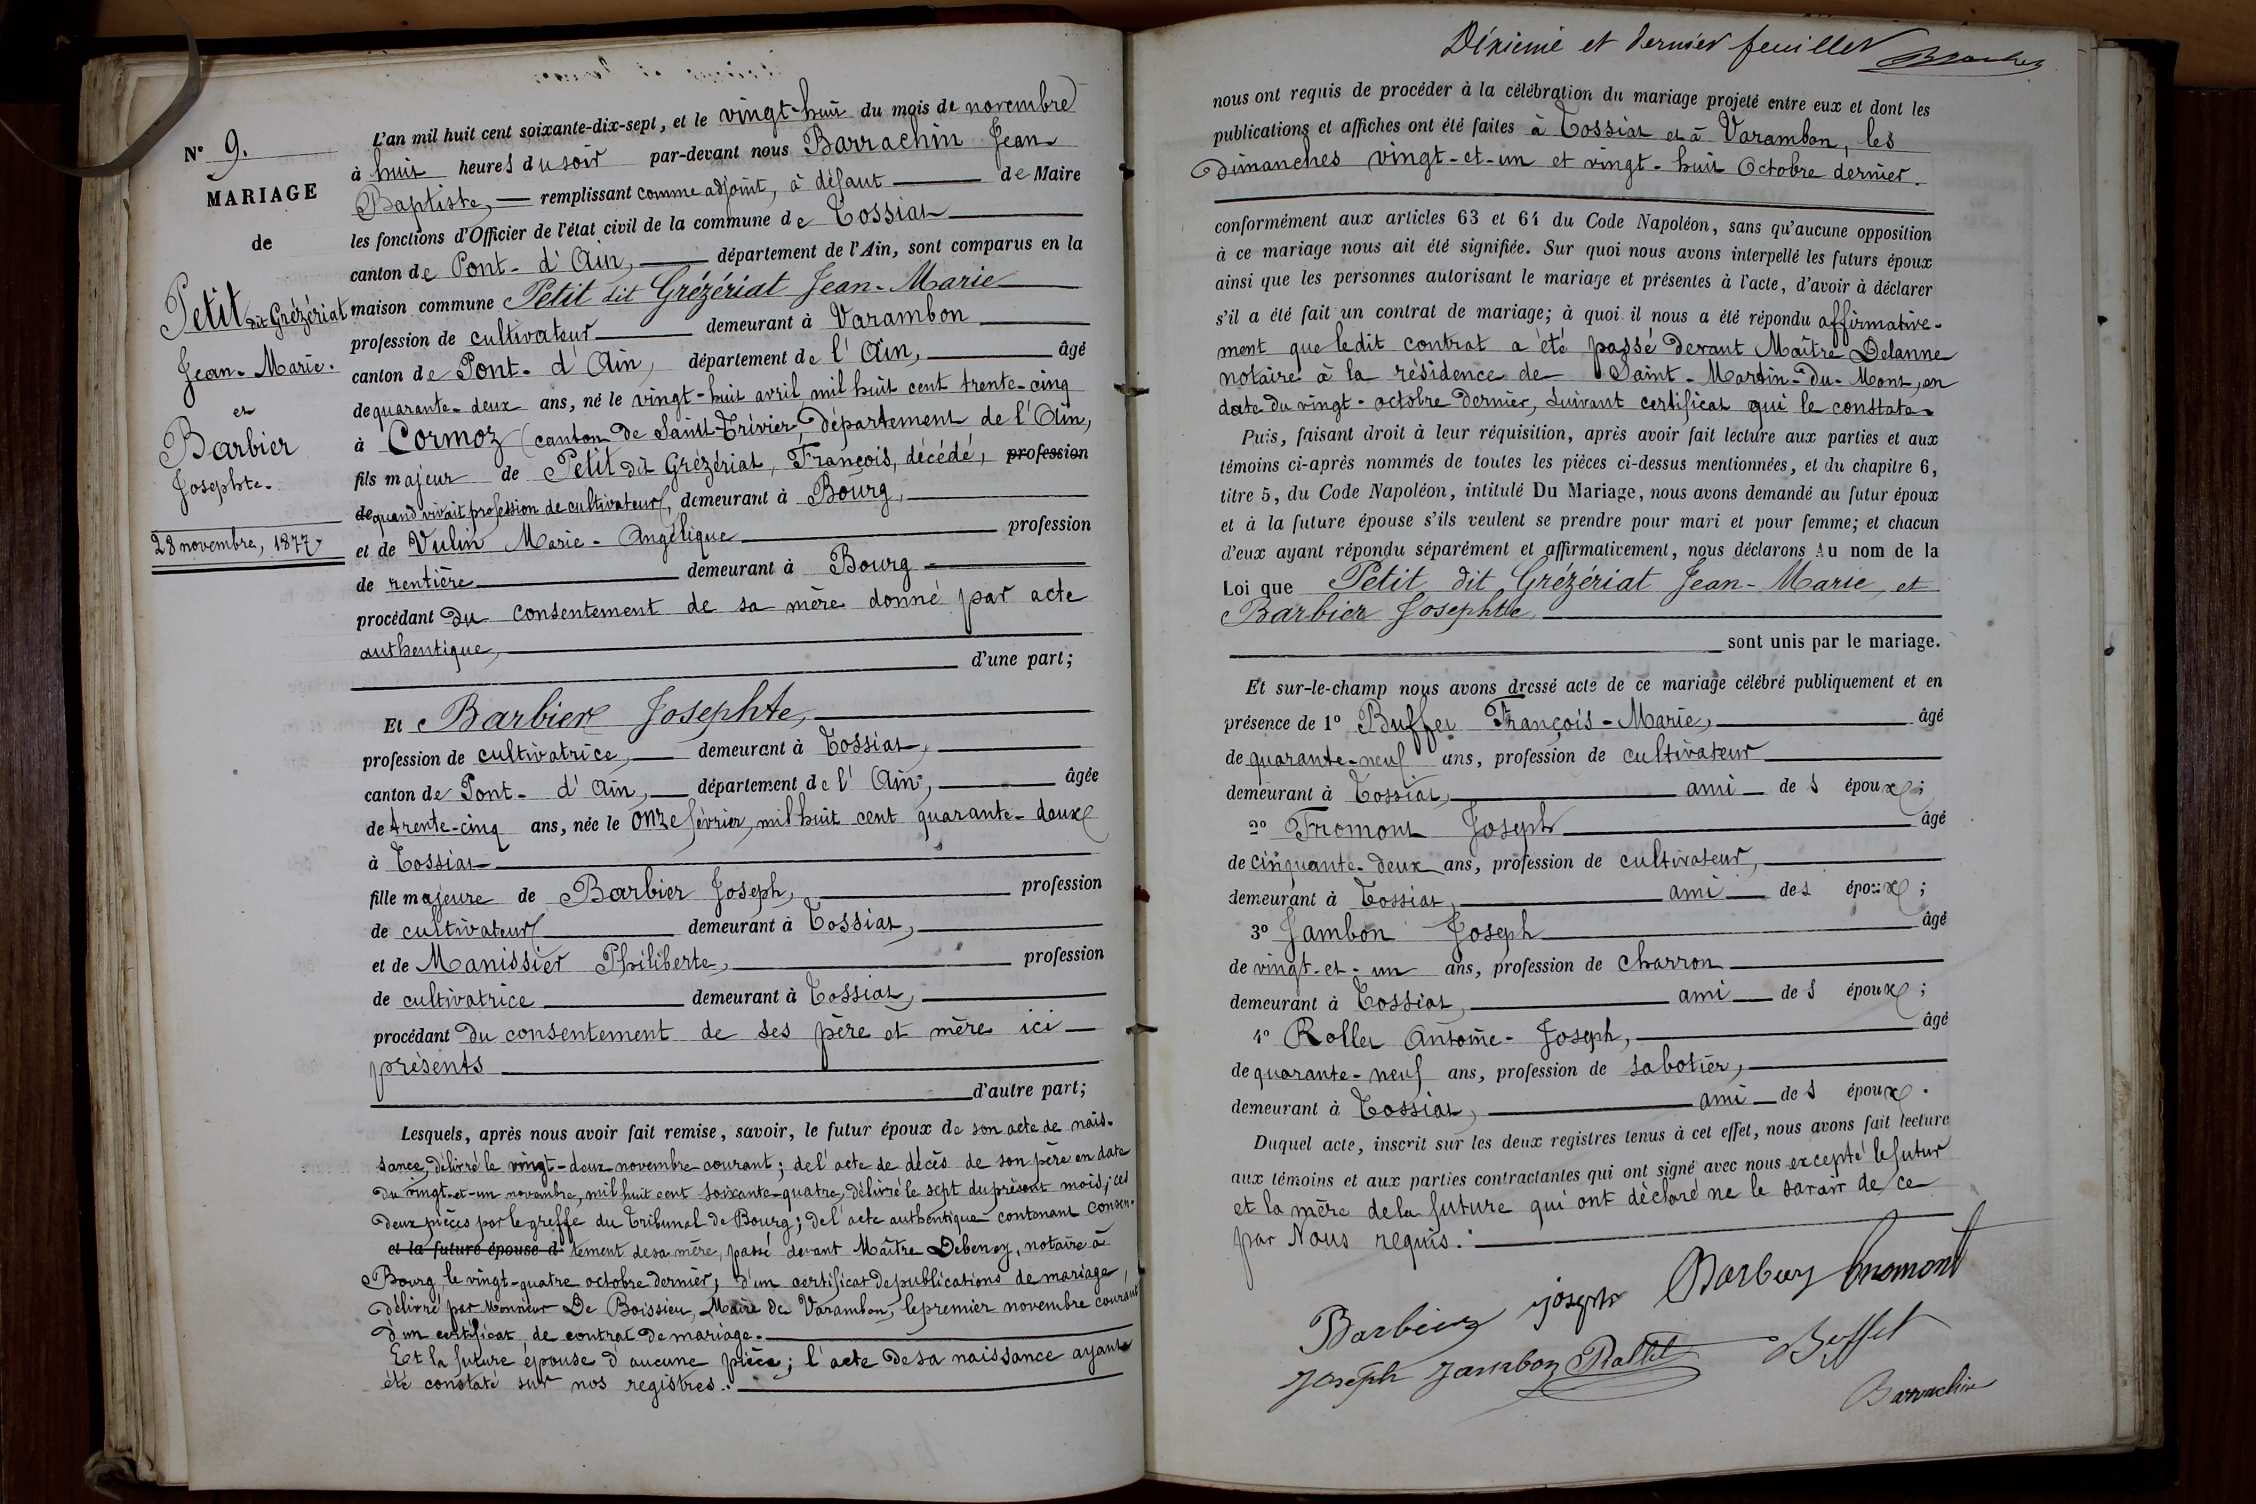 N° 9.
MARIAGE
de
Petit dit Grézériat
Jean-Marie.
et
Barbier
Josephte.
28 novembre, 1877
L'an mil huit cent soixante-dix-sept, et le vingt-huit du mois de novembre
à huit heures du soir par-devant nous Barrachin Jean-
Baptiste, remplissant comme adjoint, à défaut de Maire
les fonctions d'Officier de l'état civil de la commune de Tossiat
canton de Pont-d'Ain, département de l'Ain, sont comparus en la
maison commune Petit dit Grézériat Jean-Marie
profession de cultivateur demeurant à Varambon
canton de Pont-d'Ain, département de l'Ain, âgé
de quarante-deux ans, né le vingt-huit avril, mil huit cent trente-cinq
à Cormoz (canton de Saint-Trivier, Département de l'Ain,
fils majeur de Petit dit Grézériat, François, décédé, profession
de quand vivait profession de cultivateur, demeurant à Bourg,
et de Vulin Marie-Angélique profession
de rentière demeurant à Bourg
procédant du consentement de sa mère donné par acte
authentique,
d'une part;
Et Barbier Josephte,
profession de cultivatrice, demeurant à Tossiat,
canton de Pont-d'Ain, département de l'Ain, âgée
de trente-cinq ans, née le onze février, mil huit cent quarante-deux
à Tossiat
fille majeure de Barbier Joseph, profession
de cultivateur demeurant à Tossiat,
et de Manissier Philiberte, profession
de cultivatrice demeurant à Tossiat,
procédant du consentement de ses père et mère ici
présents
d'autre part;
Lesquels, après nous avoir fait remise, savoir, le futur époux de son acte de nais-
sance, délivré le vingt-deux novembre courant; de l'acte de décès de son père en date
du vingt-et-un novembre, mil huit cent soixante-quatre, délivré le sept du présent mois; ces
deux pièces par le greffe du Tribunal de Bourg; de l'acte authentique contenant consen-
et la future épouse d tement de sa mère, passé devant Maître Debeney, notaire à
Bourg le vingt-quatre octobre dernier; d'un certificat de publications de mariage,
délivré par Monsieur De Boissieu, Maire de Varambon, le premier novembre courant
d'un certificat de contrat de mariage.
Et la future épouse d'aucune pièce; l'acte de sa naissance ayant
été constaté sur nos registres.
Dixième et dernier feuillet
nous ont requis de procéder à la célébration du mariage projeté entre eux et dont les
publications et affiches ont été faites à Tossiat et à Varambon, les
Dimanches vingt-et-un et vingt-huit Octobre dernier.
conformément aux articles 63 et 64 du Code Napoléon, sans qu'aucune opposition
à ce mariage nous ait été signifiée. Sur quoi nous avons interpellé les futurs époux
ainsi que les personnes autorisant le mariage et présentes à l'acte, d'avoir à déclarer
s'il a été fait un contrat de mariage; à quoi il nous a été répondu affirmative-
ment que ledit contrat a été passé devant Maître Delanne
notaire à la résidence de Saint-Martin-du-Mont, en
date du vingt-octobre dernier, suivant certificat qui le constate.
Puis, faisant droit à leur réquisition, après avoir fait lecture aux parties et aux
témoins ci-après nommés de toutes les pièces ci-dessus mentionnées, et du chapitre 6,
titre 5, du Code Napoléon, intitulé Du Mariage, nous avons demandé au futur époux
et à la future épouse s'ils veulent se prendre pour mari et pour femme; et chacun
d'eux ayant répondu séparément et affirmativement, nous déclarons Au nom de la
Loi que Petit dit Grézériat Jean-Marie, et
Barbier Josephte,
sont unis par le mariage.
Et sur-le-champ nous avons dressé acte de ce mariage célébré publiquement et en
présence de 1° Buffet François-Marie, âgé
de quarante-neuf ans, profession de cultivateur
demeurant à Tossiat, ami des époux;
2° Fromont Joseph âgé
de cinquante-deux ans, profession de cultivateur,
demeurant à Tossiat, ami des époux;
3° Jambon Joseph âgé
de vingt-et-un ans, profession de charron
demeurant à Tossiat, ami des époux;
4° Rollet Antoine-Joseph, âgé
de quarante-neuf ans, profession de sabotier,
demeurant à Tossiat, ami des époux.
Duquel acte, inscrit sur les deux registres tenus à cet effet, nous avons fait lecture
aux témoins et aux parties contractantes qui ont signé avec nous excepté le futur
et la mère de la future qui ont déclaré ne le savoir de ce
par Nous requis.
Barbier joseph Barbier fromont
Joseph Jambon Rollet Buffet
Barrachin